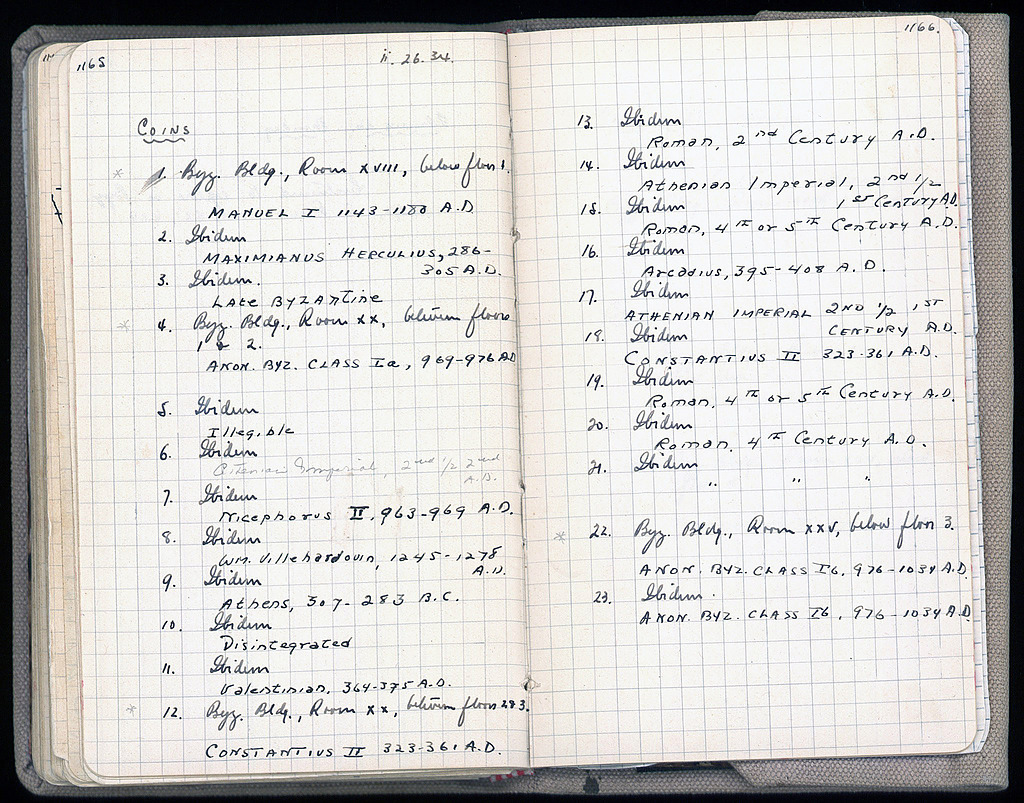 1165
ii. 26. 34.
COINS
* 1. Byz. Bldg., Room XVIII, below floor 1.
MANUEL I 1143-1180 A.D.
2. Ibidem
MAXIMIANUS HERCULIUS, 286-
305 A.D.
3. Ibidem.
LAte BYZAntine
* 4. Byz. Bldg., Room XX, between floors
1 & 2.
ANON. BYZ. CLASS Ia, 969-976 AD
5. Ibidem
Illegible
6. Ibidem
Athenian Imperial, 2nd 1/2 2nd
A.D.
7. Ibidem
Nicephorus II, 963-969 A.D.
8. Ibidem
Wm. Villehardouin, 1245-1278
A.D.
9. Ibidem
Athens, 307-283 B.C.
10. Ibidem
Disintegrated
11. Ibidem
Valentinian, 364-375 A.D.
* 12. Byz. Bldg., Room XX, between floors 2 & 3.
CONSTANTIUS II 323-361 A.D.
1166.
13. Ibidem
Roman, 2nd Century A.D.
14. Ibidem
Athenian Imperial, 2nd 1/2
1st Century A.D.
15. Ibidem
Roman, 4th or 5th Century A.D.
16. Ibidem
Arcadius, 395-408 A.D.
17. Ibidem
ATHENIAN IMPERIAL 2ND 1/2 1ST
CENTURY A.D.
18. Ibidem
CONSTANTIUS II 323-361 A.D.
19. Ibidem
Roman, 4th or 5th Century A.D.
20. Ibidem
Roman, 4th Century A.D.
21. Ibidem
" " "
* 22. Byz. Bldg., Room XXV, below floor 3.
ANON. BYZ. CLASS Ib, 976-1034 A.D.
23. Ibidem.
ANON. BYZ. CLASS Ib, 976-1034 A.D.